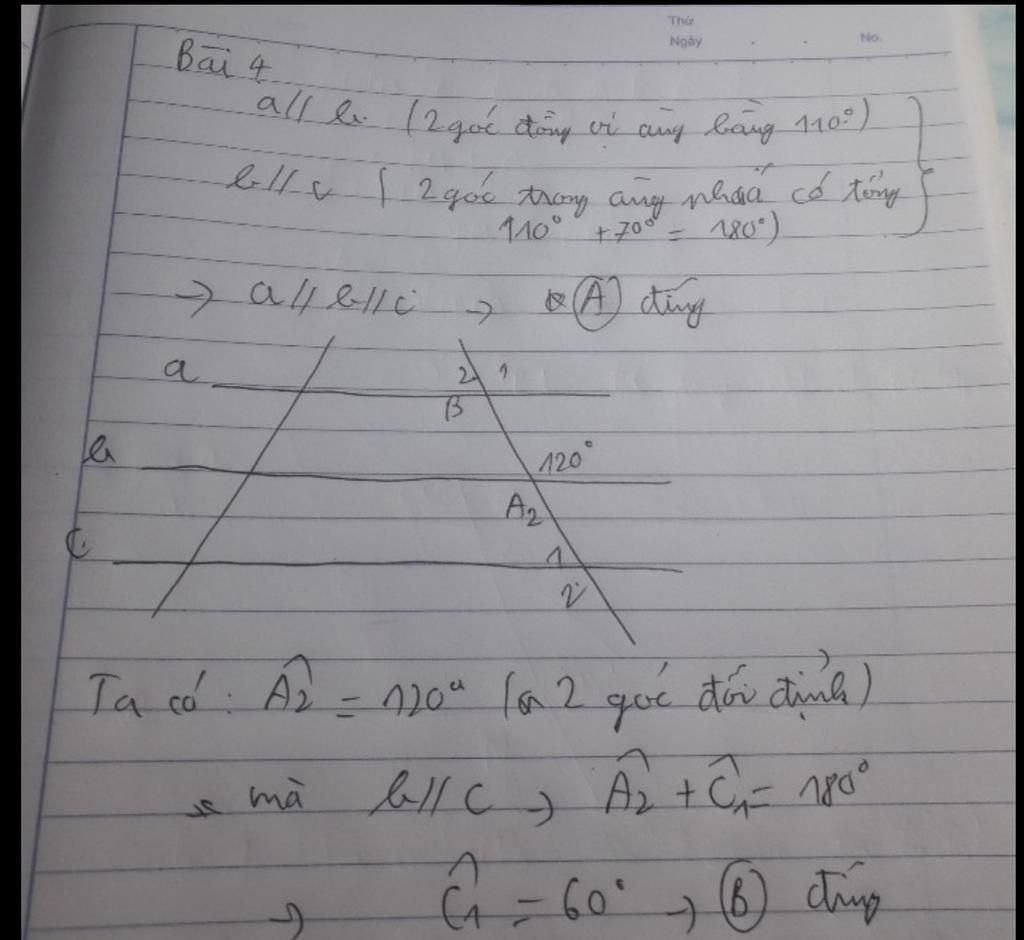 Thứ
Ngày . . No.
Bài 4
a // b (2 góc đồng vị cùng bằng 110°)
b // c (2 góc trong cùng phía có tổng
110° + 70° = 180°)
→ a // b // c → Ⓐ đúng
a 2 1
B
b 120°
A2
c 1
2
Ta có: Â2 = 120° (2 góc đối đỉnh)
mà b // c → Â2 + Ĉ1 = 180°
→ Ĉ1 = 60° → Ⓑ đúng